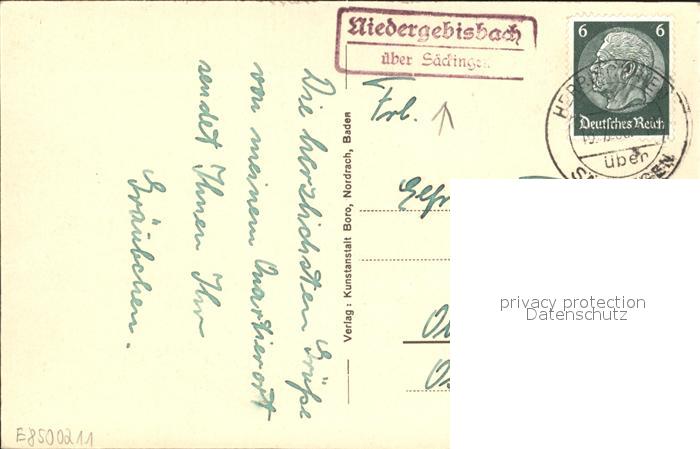 Niedergebisbach
über Säckingen
6 6
Deutsches Reich
über
Frl.
Die herzlichsten Grüße
von meinem Quartierort
sendet Ihnen Ihr
Gräubchen.
Verlag: Kunstanstalt Boro, Nordrach, Baden
privacy protection
Datenschutz
E8500211